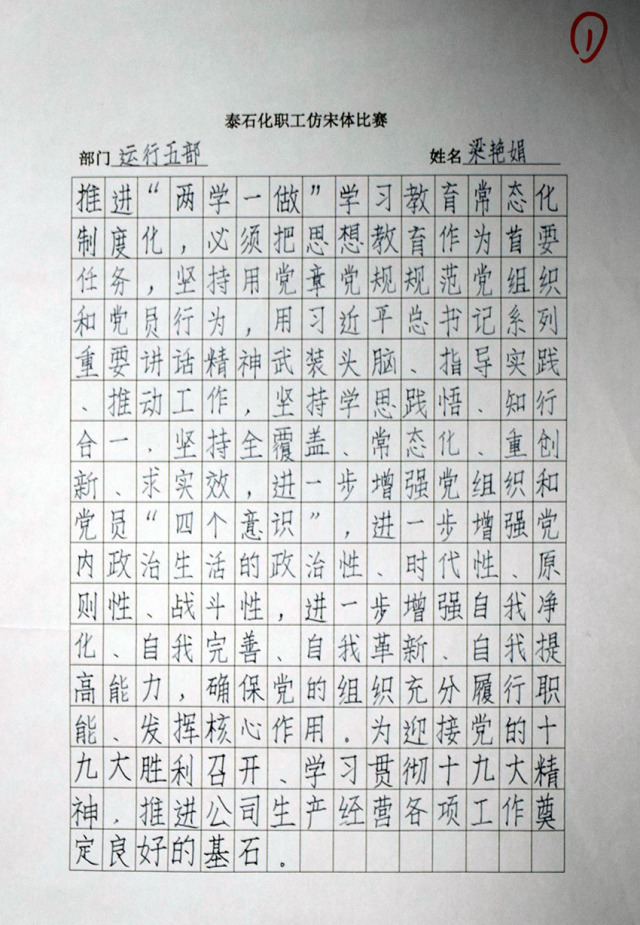 1
泰石化职工仿宋体比赛
部门 运行五部 姓名 梁艳娟
推进“两学一做”学习教育常态化
制度化，必须把思想教育作为首要
任务，坚持用党章党规规范党组织
和党员行为，用习近平总书记系列
重要讲话精神武装头脑、指导实践
、推动工作，坚持学思践悟、知行
合一，坚持全覆盖、常态化、重创
新、求实效，进一步增强党组织和
党员“四个意识”，进一步增强党
内政治生活的政治性、时代性、原
则性、战斗性，进一步增强自我净
化、自我完善、自我革新、自我提
高能力，确保党的组织充分履行职
能、发挥核心作用。为迎接党的十
九大胜利召开、学习贯彻十九大精
神，推进公司生产经营各项工作奠
定良好的基石。